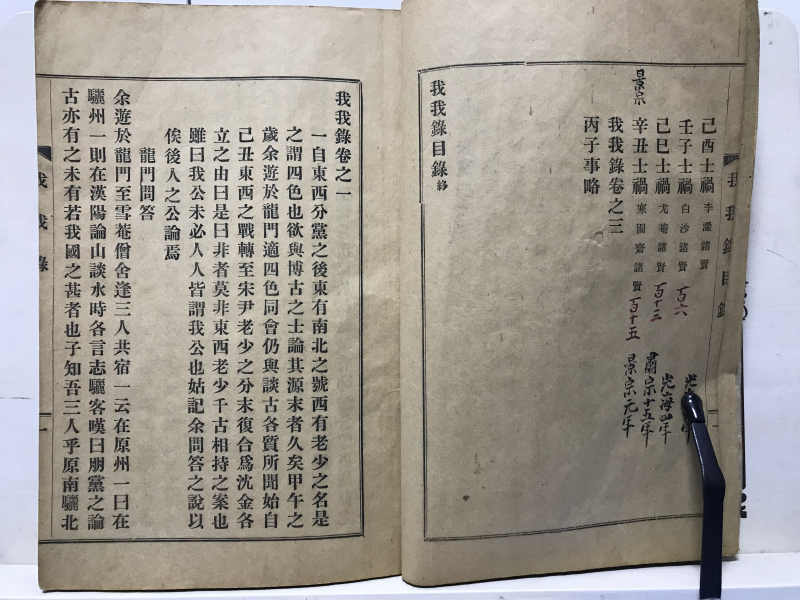 己酉士禍 李瀣諸賢
壬子士禍 白沙諸賢 百六
己巳士禍 尤菴諸賢 百十三 光海四年
景宗 辛丑士禍 寒圃齋諸賢 百十五 肅宗十五年
我我錄卷之三 景宗元年
丙子事略
我我錄目錄終
我我錄目錄
我我錄卷之一
一自東西分黨之後東有南北之號西有老少之名是
之謂四色也欲與博古之士論其源末者久矣甲午之
歲余遊於龍門適四色同會仍與談古各質所聞始自
己丑東西之戰轉至宋尹老少之分末復合爲沈金各
立之由曰是曰非者莫非東西老少千古相持之案也
雖曰我公未必人人皆謂我公也姑記余問答之說以
俟後人之公論焉
龍門問答
余遊於龍門至雪菴僧舍逢三人共宿一云在原州一曰在
驪州一則在漢陽論山談水時各言志驪客嘆曰朋黨之論
古亦有之未有若我國之甚者也子知吾三人乎原南驪北
我我錄
一